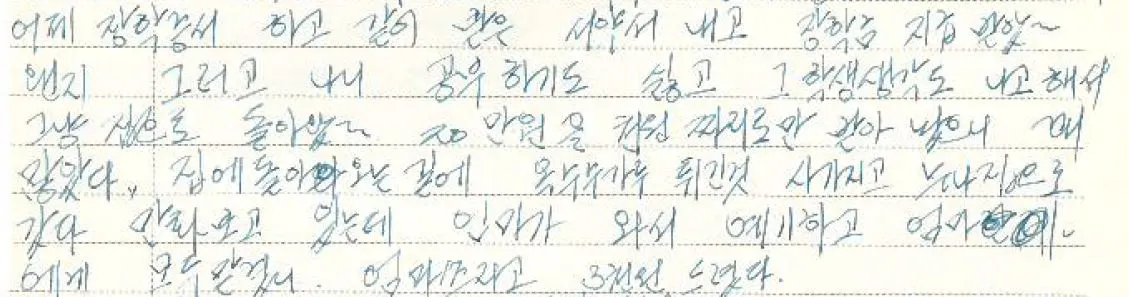 어제 장학증서 하고 같이 받은 서약서 내고 장학금 지급 받았~
왠지 그러고 나니 공부하기도 싫고 그 학생생각도 나고 해서
그냥 집으로 돌아왔~ 20만원을 천원 짜리로만 받아 넣으니 꽤
많았다. 집에 돌아오는 길에 옥수수가루 튀긴것 사가지고 누나집으로
갔다 만화보고 있는데 엄마가 와서 얘기하고 엄마
에게 모두 맡겼다. 엄마쓰자고 3천원 드렸다.